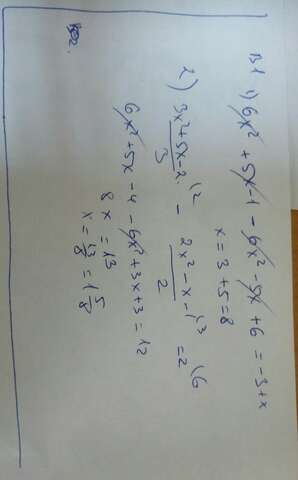 В1 1) 6x² + 5x - 1 - 6x² - 5x + 6 = -3 + x
x = 3 + 5 = 8
2) (3x² + 5x - 2)/3 \2 - (2x² - x - 1)/2 \3 = 2 \6
6x² + 5x - 4 - 6x² + 3x + 3 = 12
8x = 13
x = 13/8 = 1 5/8